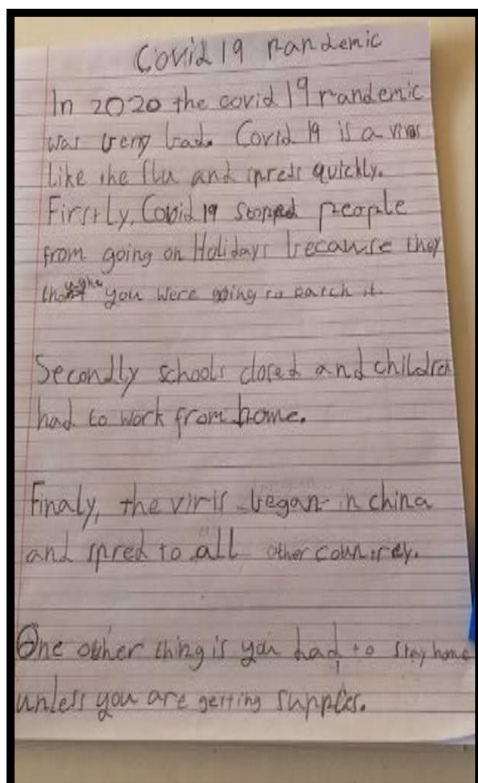 Covid 19 Pandemic
In 2020 the covid 19 Pandemic
was very bad. Covid 19 is a virus
like the flu and spreds quickly.
Firstly, Covid 19 stopped people
from going on Holidays because they
you were going to catch it.
Secondly schools closed and children
had to work from home.
Finaly, the viris began in china
and spred to all other countrey.
One other thing is you had to stay home
unless you are getting supplies.